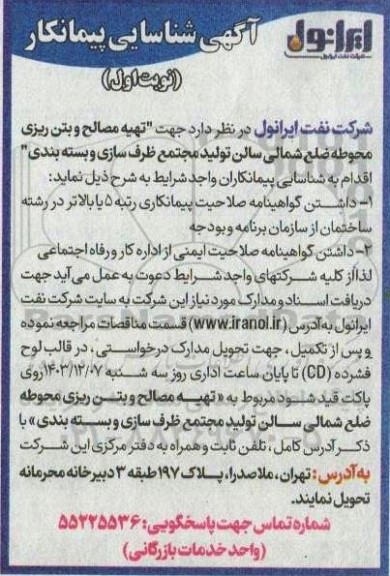 ایرانول
شرکت نفت ایرانول
آگهی شناسایی پیمانکار
(نوبت اول)
شرکت نفت ایرانول در نظر دارد جهت "تهیه مصالح و بتن ریزی
محوطه ضلع شمالی سالن تولید مجتمع ظرف سازی و بسته بندی"
اقدام به شناسایی پیمانکاران واجد شرایط به شرح ذیل نماید:
۱- داشتن گواهینامه صلاحیت پیمانکاری رتبه ۵ یا بالاتر در رشته
ساختمان از سازمان برنامه و بودجه
۲- داشتن گواهینامه صلاحیت ایمنی از اداره کار و رفاه اجتماعی
لذا از کلیه شرکتهای واجد شرایط دعوت به عمل می آید جهت
دریافت اسناد و مدارک مورد نیاز این شرکت به سایت شرکت نفت
ایرانول به آدرس (www.iranol.ir) قسمت مناقصات مراجعه نموده
و پس از تکمیل، جهت تحویل مدارک درخواستی، در قالب لوح
فشرده (CD) تا پایان ساعت اداری روز سه شنبه ۱۴۰۳/۱۲/۰۷ روی
پاکت قید شود مربوط به « تهیه مصالح و بتن ریزی محوطه
ضلع شمالی سالن تولید مجتمع ظرف سازی و بسته بندی » با
ذکر آدرس کامل، تلفن ثابت و همراه به دفتر مرکزی این شرکت
به آدرس: تهران، ملاصدرا، پلاک ۱۹۷ طبقه ۳ دبیرخانه محرمانه
تحویل نمایند.
شماره تماس جهت پاسخگویی: ۵۵۲۲۵۵۳۶
(واحد خدمات بازرگانی)